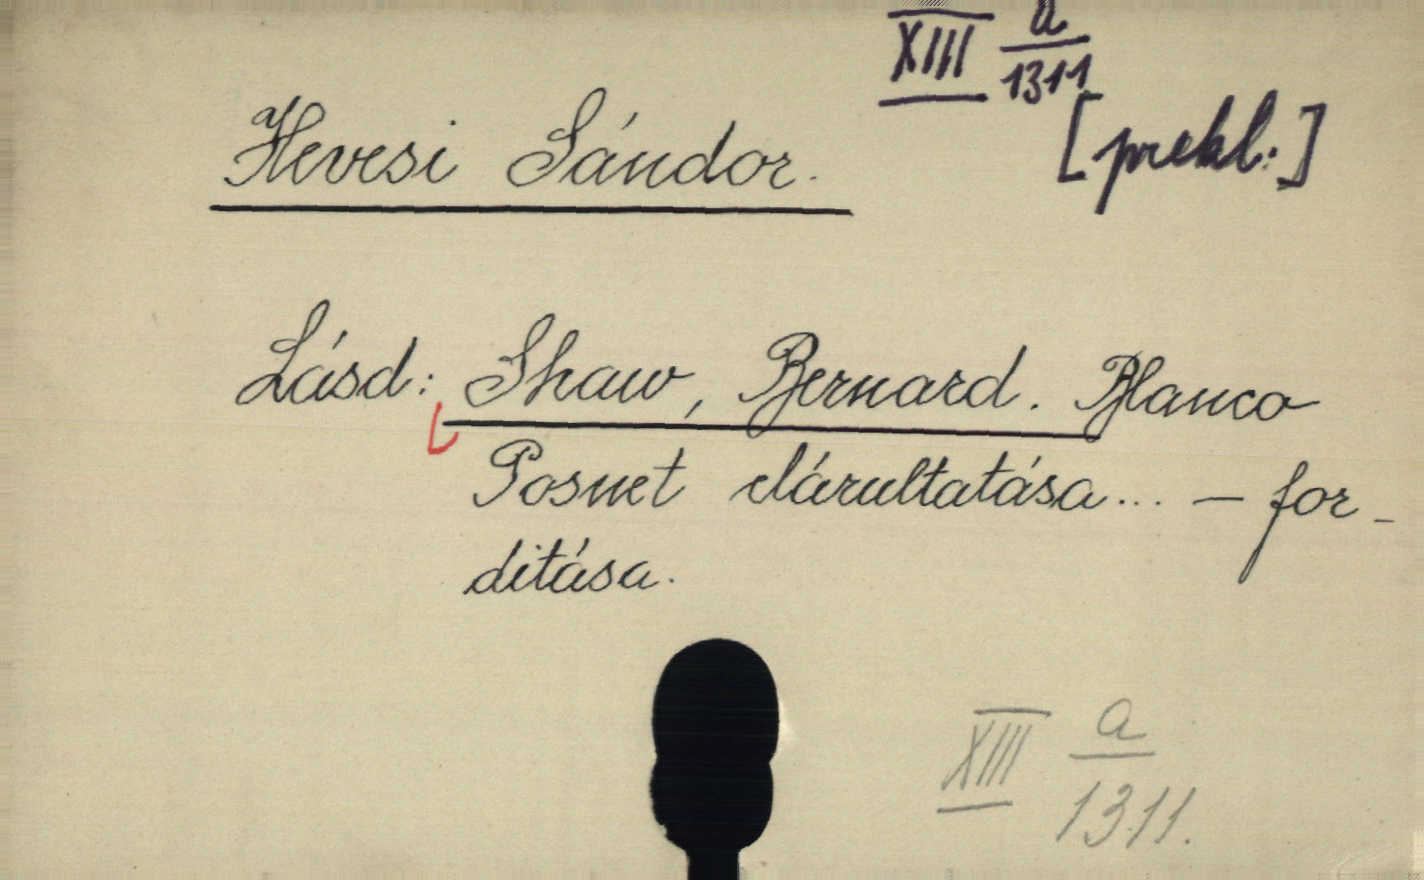 XIII a/1311
Hevesi Sándor.
[prekl.]
Lásd: Shaw, Bernard. Blanco
Posnet elárultatása... — for-
ditása.
XIII a/1311.